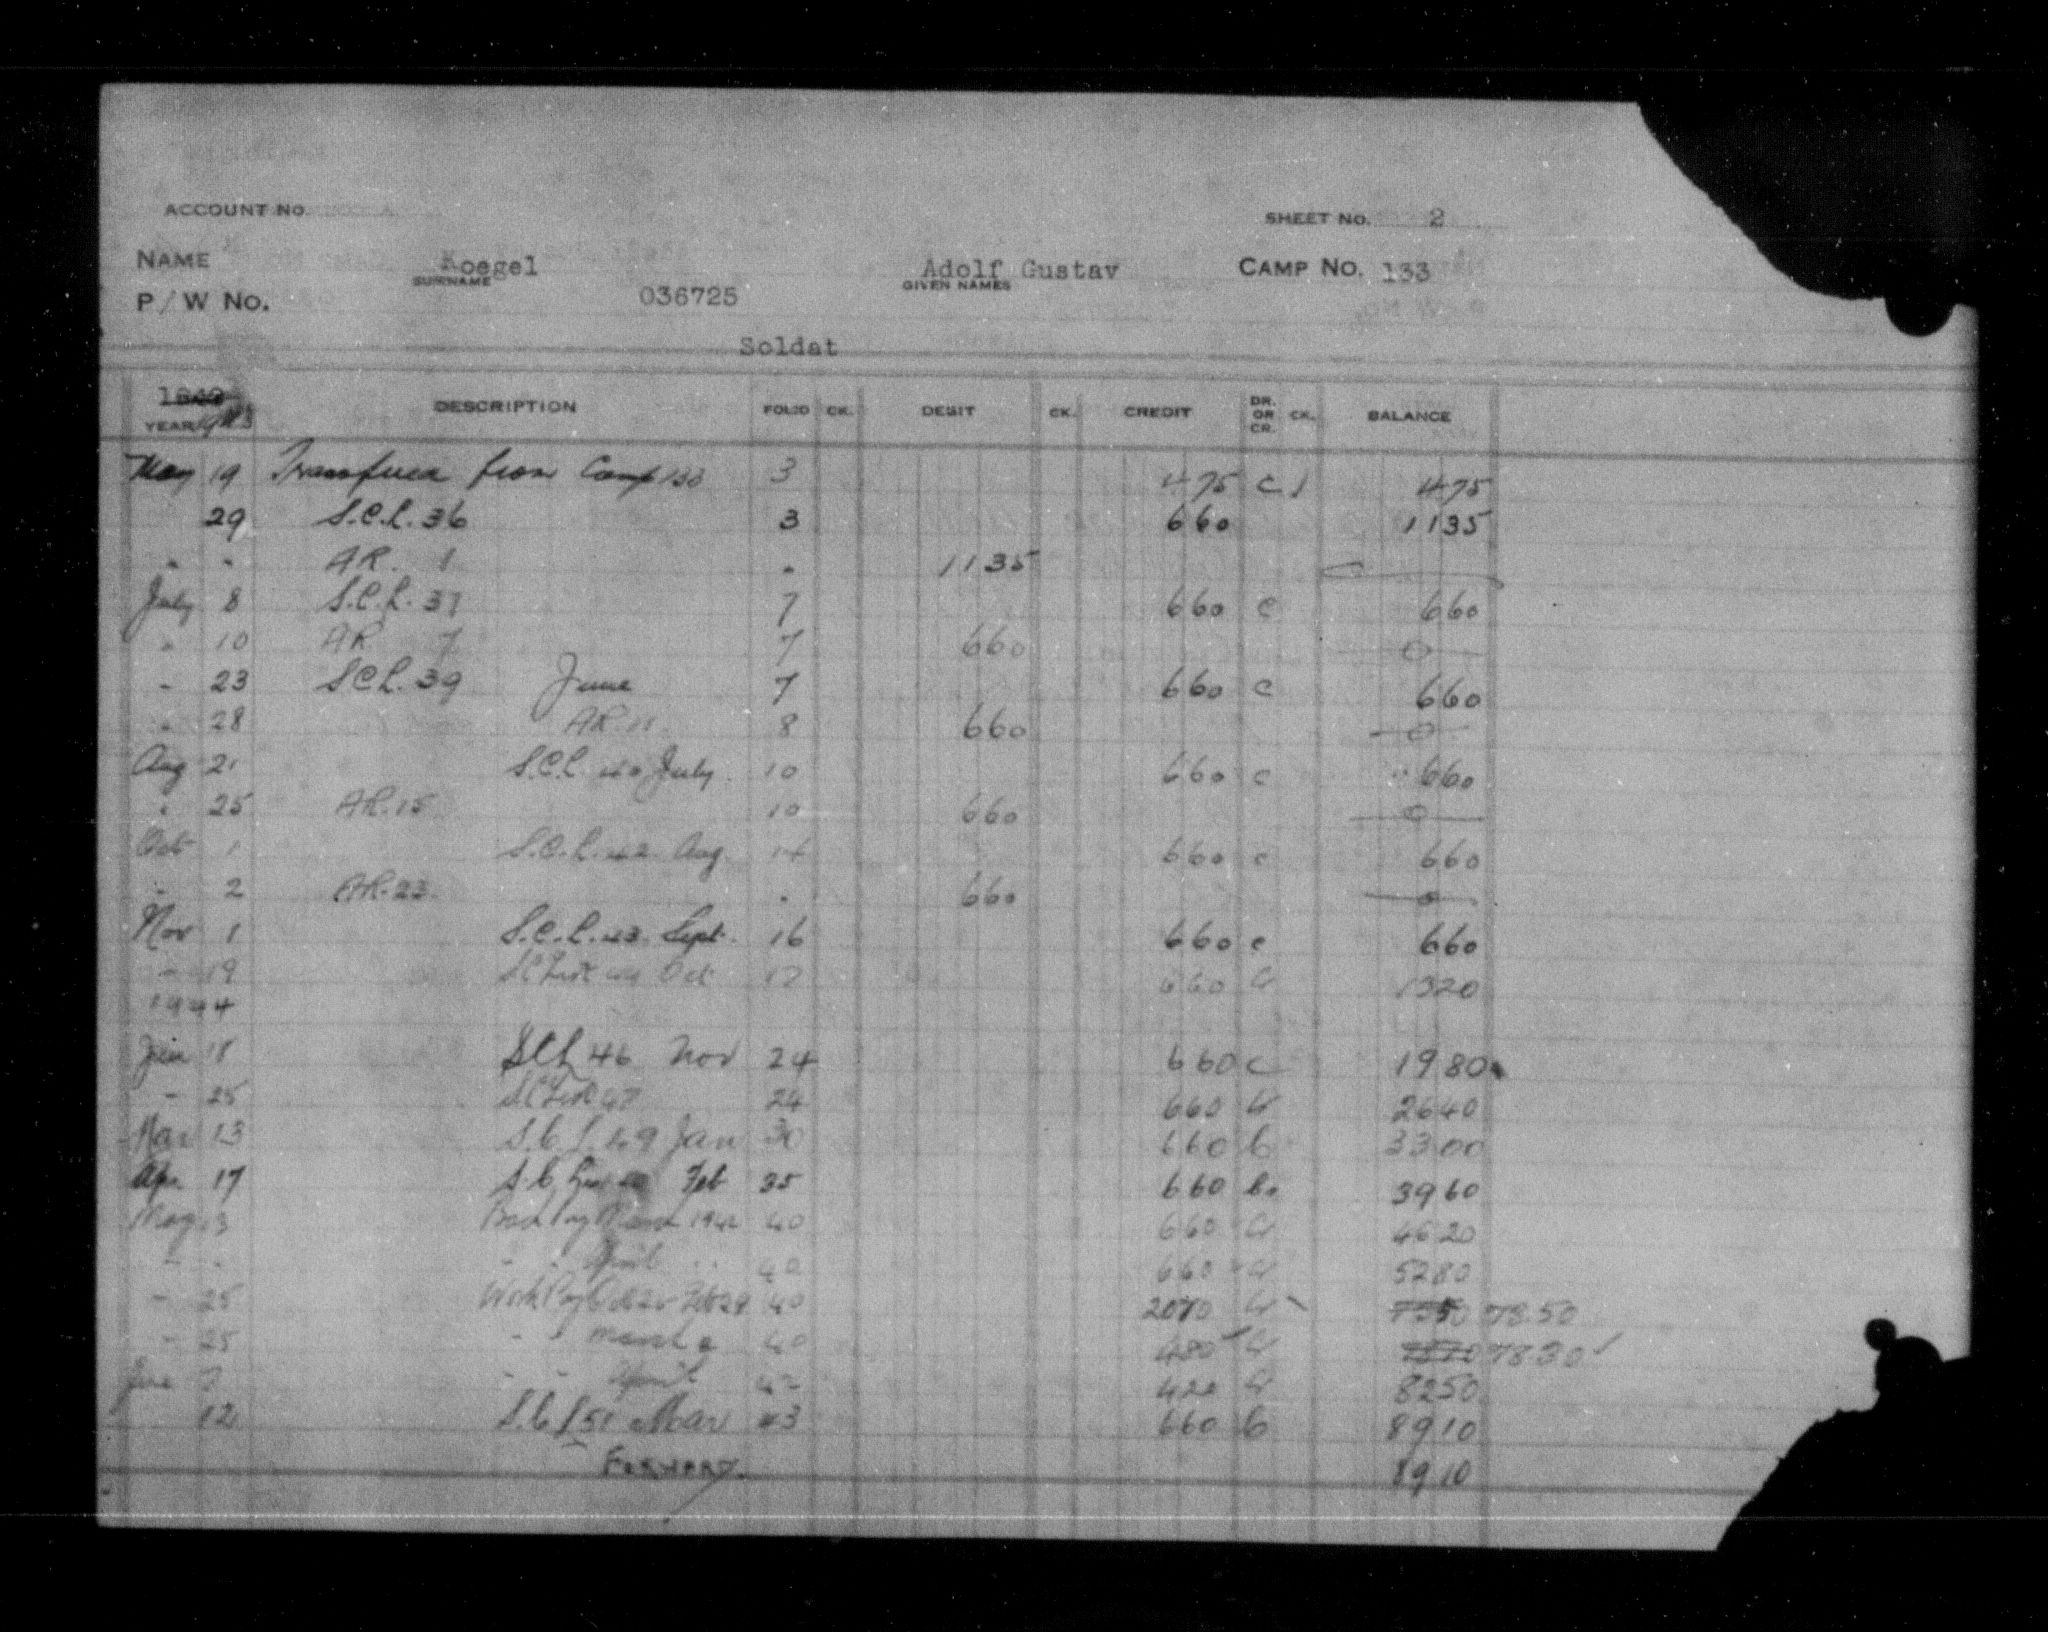 ACCOUNT NO. SHEET NO. 2
NAME Koegel Adolf Gustav CAMP NO. 133
SURNAME GIVEN NAMES
P/W No. 036725
Soldat
1942 1943
YEAR DESCRIPTION FOLIO CK. DEBIT CK. CREDIT DR. OR CR. CK. BALANCE
May 19 Transfered from Camp 133 3 475 c 475
29 S.C.L. 36 3 660 1135
" " AR. 1 " 1135
July 8 S.C.L. 37 7 660 c 660
" 10 AR 7 7 660 0
" 23 SCL. 39 June 7 660 c 660
" 28 AR. 11 8 660 0
Aug 21 S.C.L. 40 July. 10 660 c 660
" 25 AR. 15 10 660 0
Oct 1 S.C.L. 42 Aug. 14 660 c 660
" 2 AR. 23. " 660 0
Nov 1 S.C.L. 43. Sept. 16 660 c 660
" 19 SC List 44 Oct 17 660 Cr 1320
1944
Jan 18 SCL 46 Nov 24 660 c 1980
" 25 SC List 47 24 660 Cr 2640
Mar 13 S.C.L. 49 Jan 30 660 C 3300
Apr 17 S.C. Feb 35 660 Cr 3960
May 3 Basic Pay March 1944 40 660 Cr 4620
" " " " April " 40 660 Cr 5280
" 25 Work Pay 40 2070 Cr 7350 7350
" 25 " " March 40 480 Cr 7830
June 7 " " April 42 420 Cr 8250
12 S.C.L 51 Mar 43 660 C 8910
FORWARD. 8910